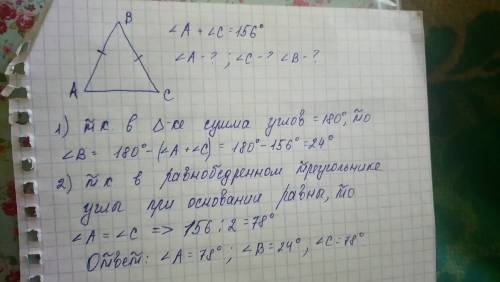 B
∠A + ∠C = 156°
∠A - ? ; ∠C - ? ∠B - ?
A
C
1) т к в Δ-ке сумма углов = 180°, то
∠B = 180° - (∠A + ∠C) = 180° - 156° = 24°
2) т к в равнобедренном треугольнике
углы при основании равны, то
∠A = ∠C => 156 : 2 = 78°
Ответ: ∠A = 78° ; ∠B = 24° ; ∠C = 78°